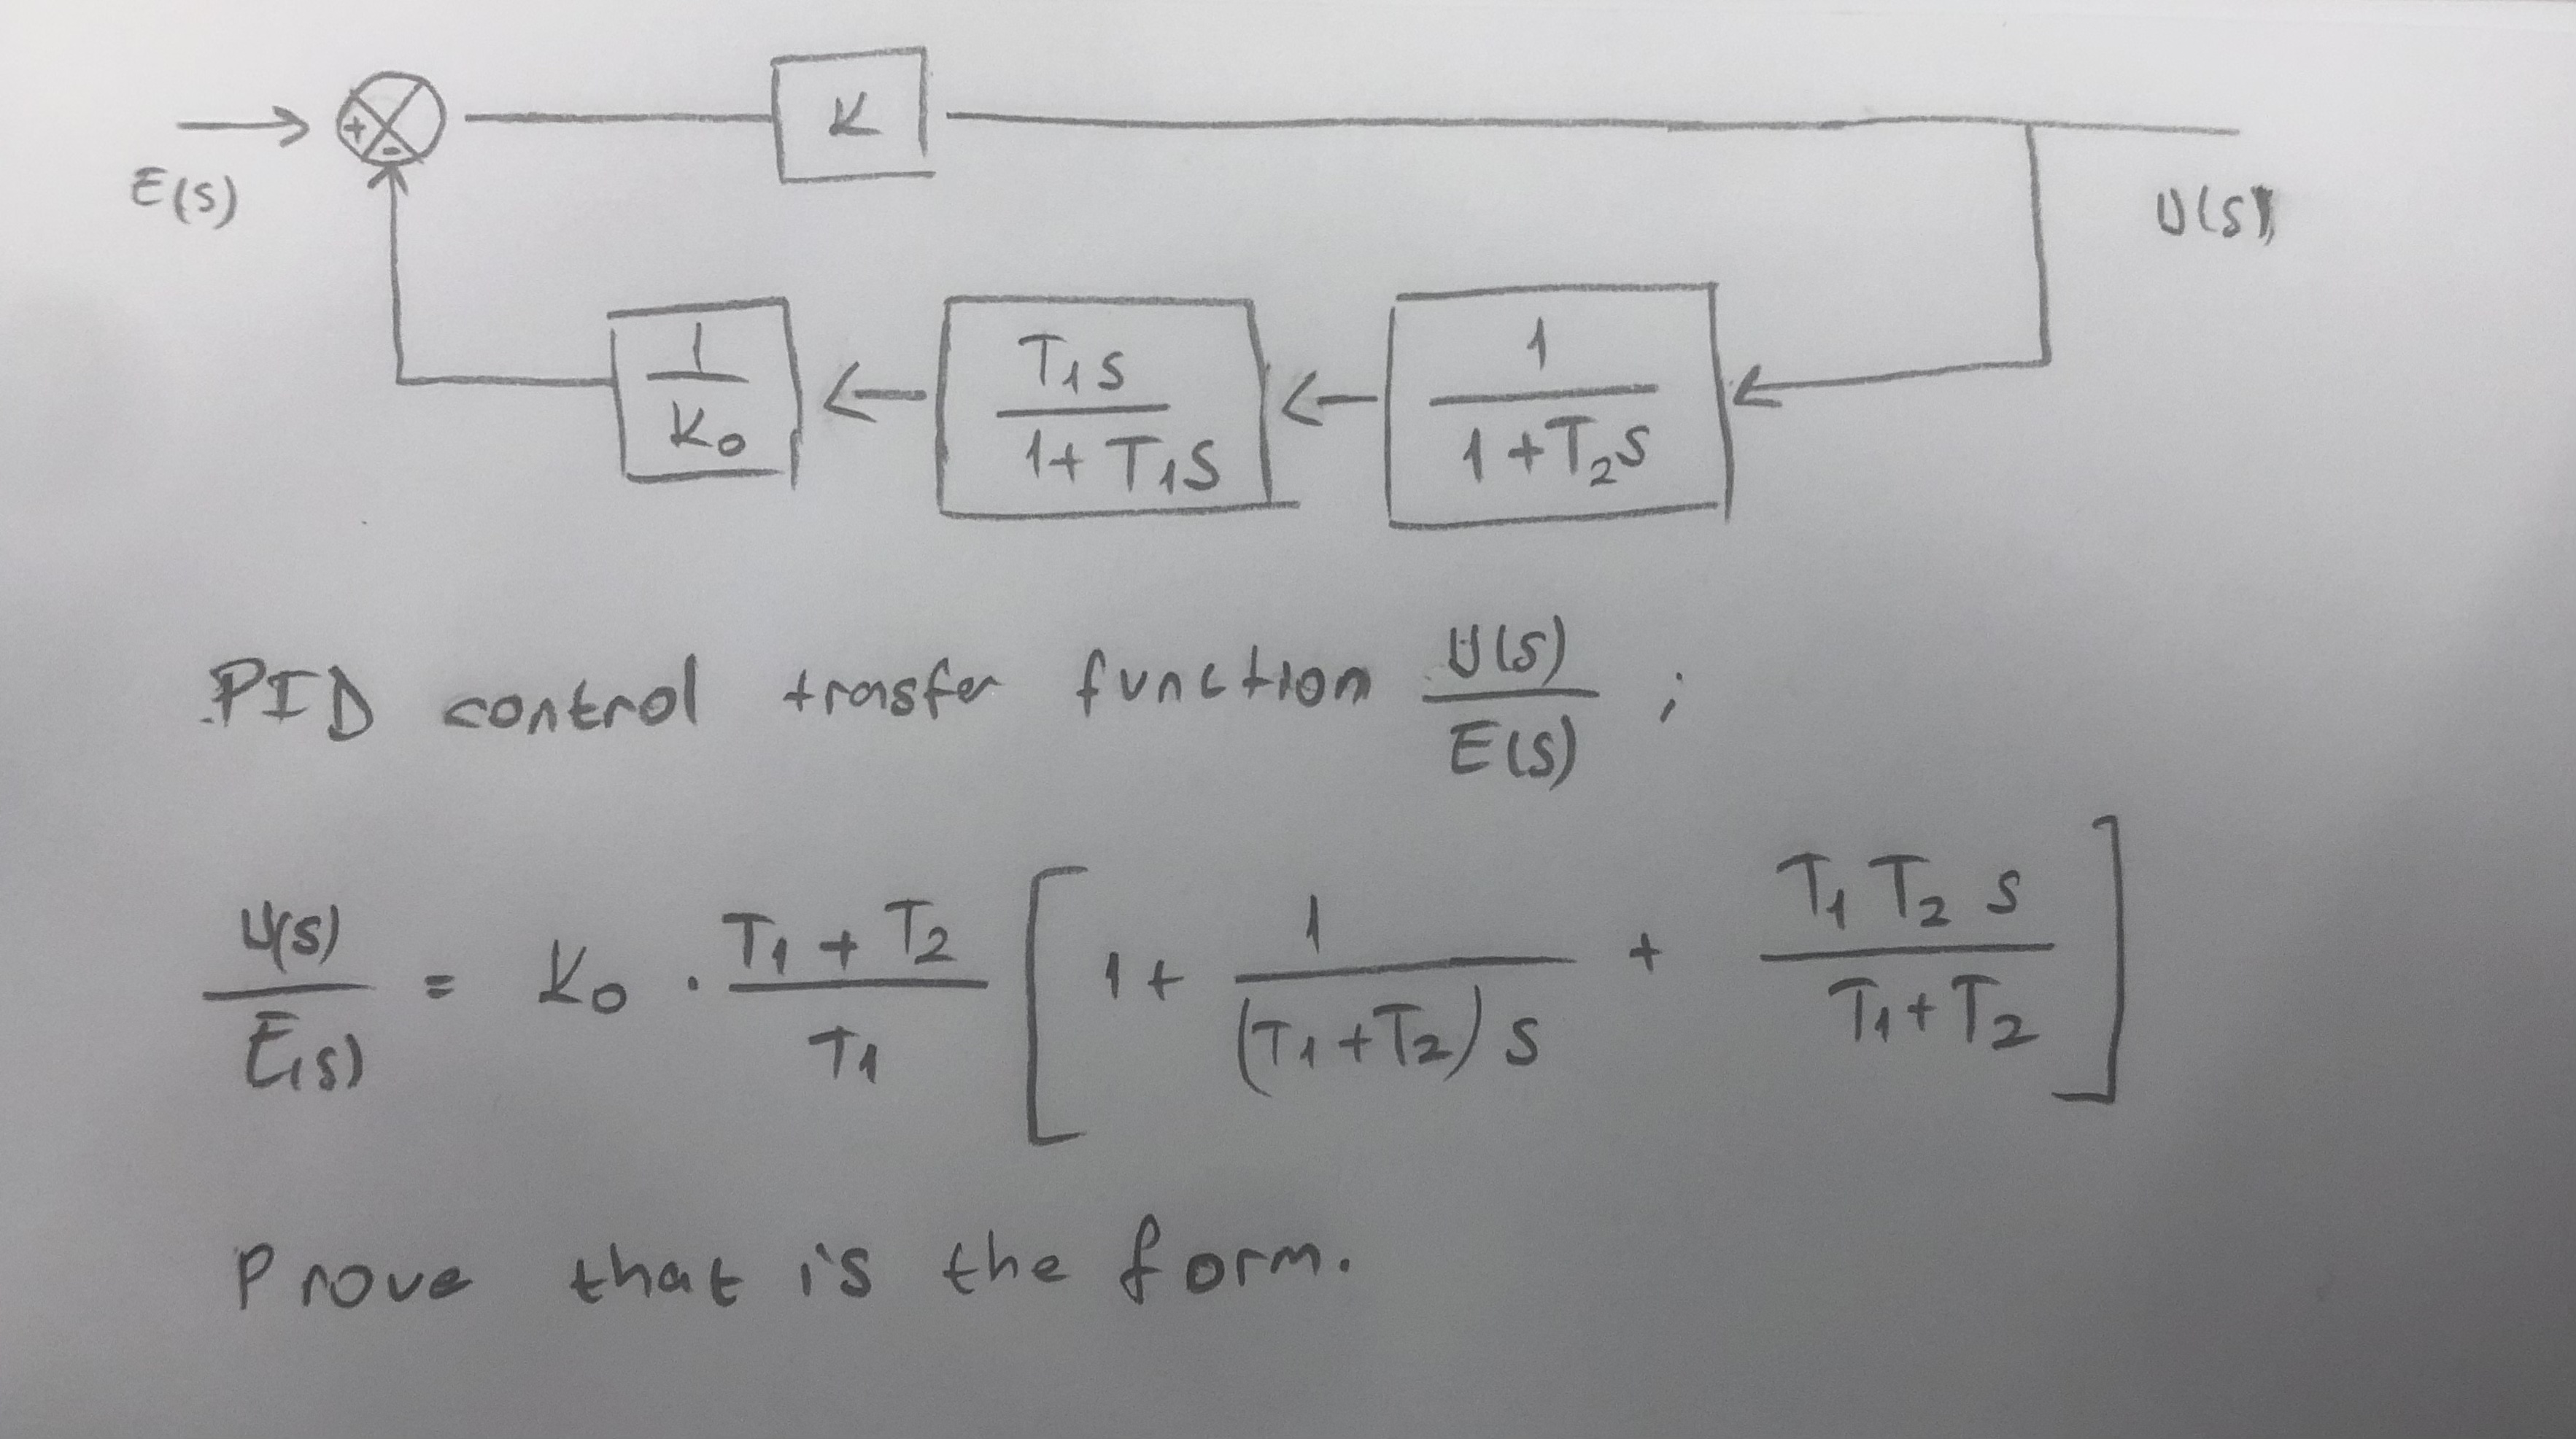 K
+
-
E(s)
U(s)
1/K₀
T₁s/1+T₁s
1/1+T₂s
PID control trasfer function U(s)/E(s) ;
U(s)/E(s) = K₀ . T₁+T₂/T₁ [ 1 + 1/(T₁+T₂)s + T₁T₂s/T₁+T₂ ]
Prove that is the form.